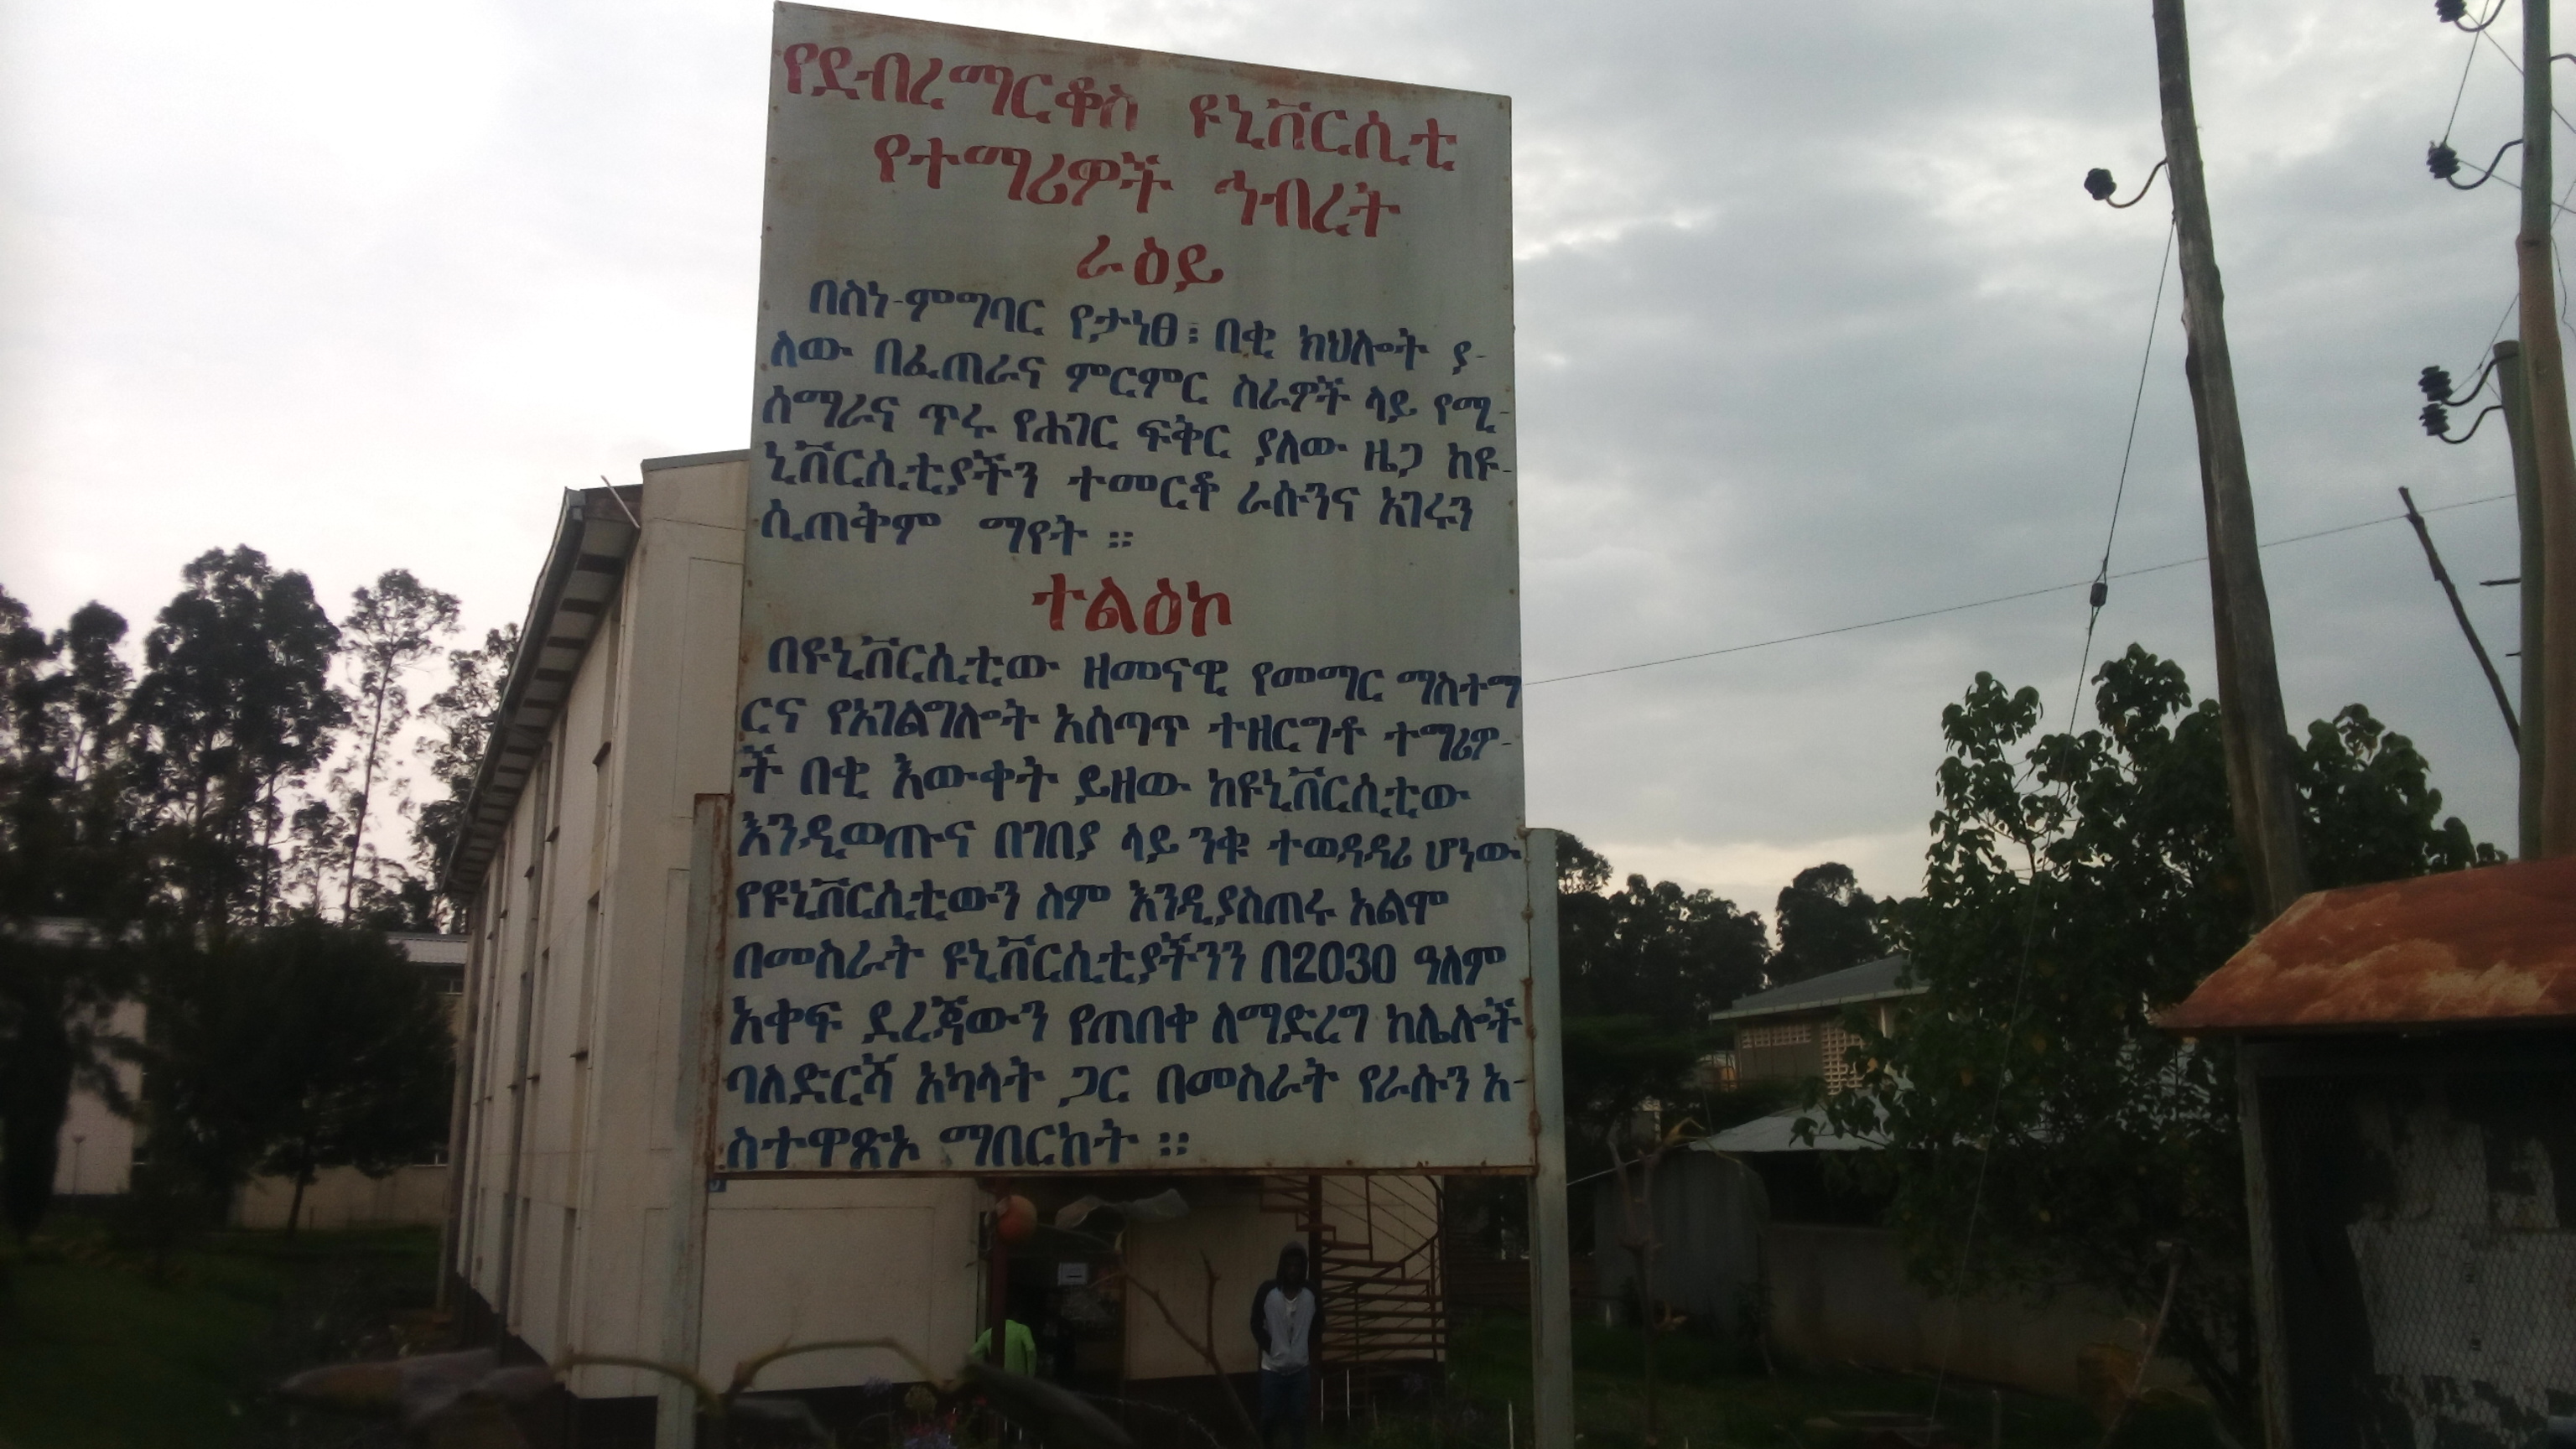 የደብረማርቆስ ዩኒቨርሲቲ
የተማሪዎች ኅብረት
ራዕይ
በስነ-ምግባር የታነፀ፤ በቂ ክህሎት ያ-
ለው በፈጠራና ምርምር ስራዎች ላይ የሚ-
ሰማራና ጥሩ የሐገር ፍቅር ያለው ዜጋ ከዩ-
ኒቨርሲቲያችን ተመርቆ ራሱንና አገሩን
ሲጠቅም ማየት ።
ተልዕኮ
በዩኒቨርሲቲው ዘመናዊ የመማር ማስተማ
ርና የአገልግሎት አሰጣጥ ተዘርግቶ ተማሪዎ-
ች በቂ እውቀት ይዘው ከዩኒቨርሲቲው
እንዲወጡና በገበያ ላይ ንቁ ተወዳዳሪ ሆነው
የዩኒቨርሲቲውን ስም እንዲያስጠሩ አልሞ
በመስራት ዩኒቨርሲቲያችንን በ2030 ዓለም
አቀፍ ደረጃውን የጠበቀ ለማድረግ ከሌሎች
ባለድርሻ አካላት ጋር በመስራት የራሱን አ-
ስተዋጽኦ ማበርከት ።